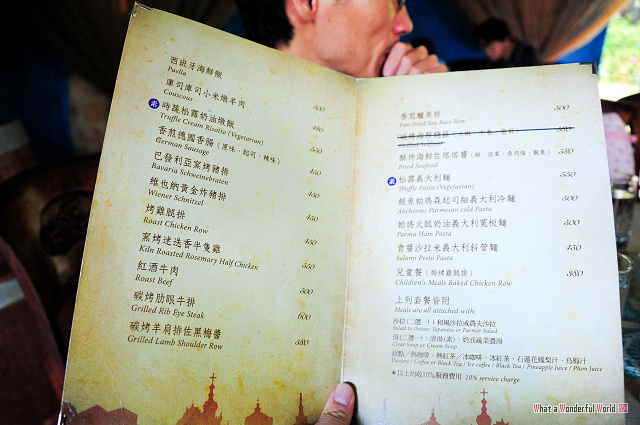 西班牙海鮮飯
Paella
庫司庫司小米燉羊肉 500
Couscous
素 時蔬松露奶油燉飯 480
Truffle Cream Risotto (Vegetarian)
香煎德國香腸(原味、起司、辣味) 450
German Sausage
巴發利亞窯烤豬排 450
Bavaria Schweinebraten
維也納黃金炸豬排 450
Wiener Schnitzel
烤雞腿排 450
Roast Chicken Row
窯烤迷迭香半隻雞 460
Kiln Roasted Rosemary Half Chicken
紅酒牛肉 550
Roast Beef
碳烤肋眼牛排 500
Grilled Rib Eye Steak
碳烤羊肩排佐黑梅醬 600
Grilled Lamb Shoulder Row 580
香煎鱸魚排 500
Pan-fried Sea Bass Row
550
酥炸海鮮佐塔塔醬 580
Fried Seafood
素 松露義大利麵 550
Truffle Pasta (Vegetarian)
鯷魚帕瑪森起司細義大利冷麵 500
Anchovies Parmesan cold Pasta
帕瑪火腿奶油義大利寬板麵 500
Parma Ham Pasta
青醬沙拉米義大利斜管麵 450
Salami Pesto Pasta
兒童餐(焗烤雞腿排) 380
Children's Meals Baked Chicken Row
上列套餐皆附
Meals are all attached with:
沙拉(二選一):和風沙拉或農夫沙拉
Salad to choose: Japanese or Farmer Salad
湯(二選一):清湯(素)、奶油蔬菜濃湯
Clear Soup or Cream Soup
甜點/熱咖啡、熱紅茶/冰咖啡、冰紅茶、石蓮花鳳梨汁、烏梅汁
Dessert / Coffee or Black Tea / Ice coffee / Black Tea / Pineapple Juice / Plum Juice
★以上均收10%服務費用 10% service charge
What a Wonderful World